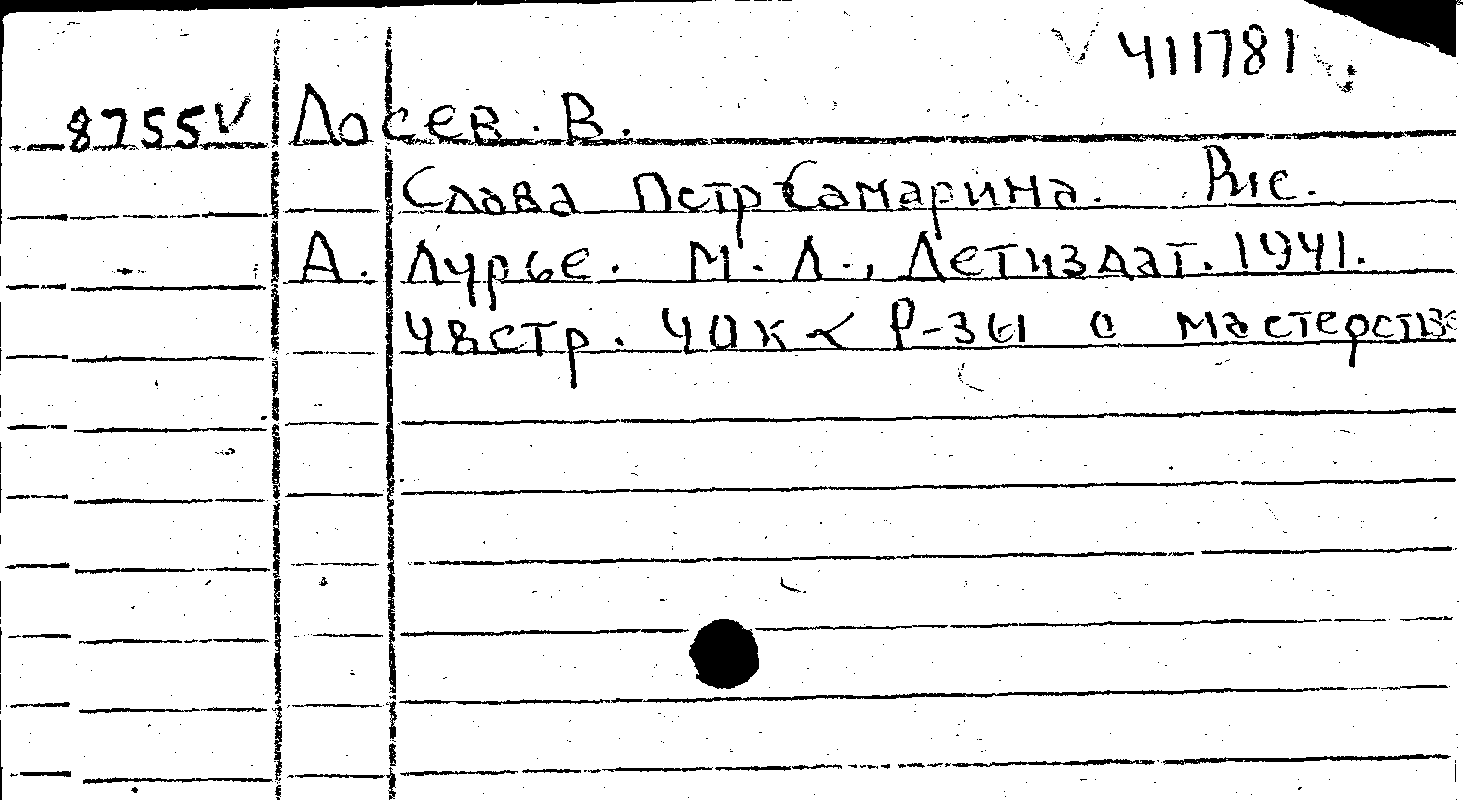 √ 411781
8755 √ Лосев. В.
Слава Петр Самарина. Рис.
А. Лурье. М. Л., Детиздат. 1941.
48 стр. 40 к < Р-зы о мастерств